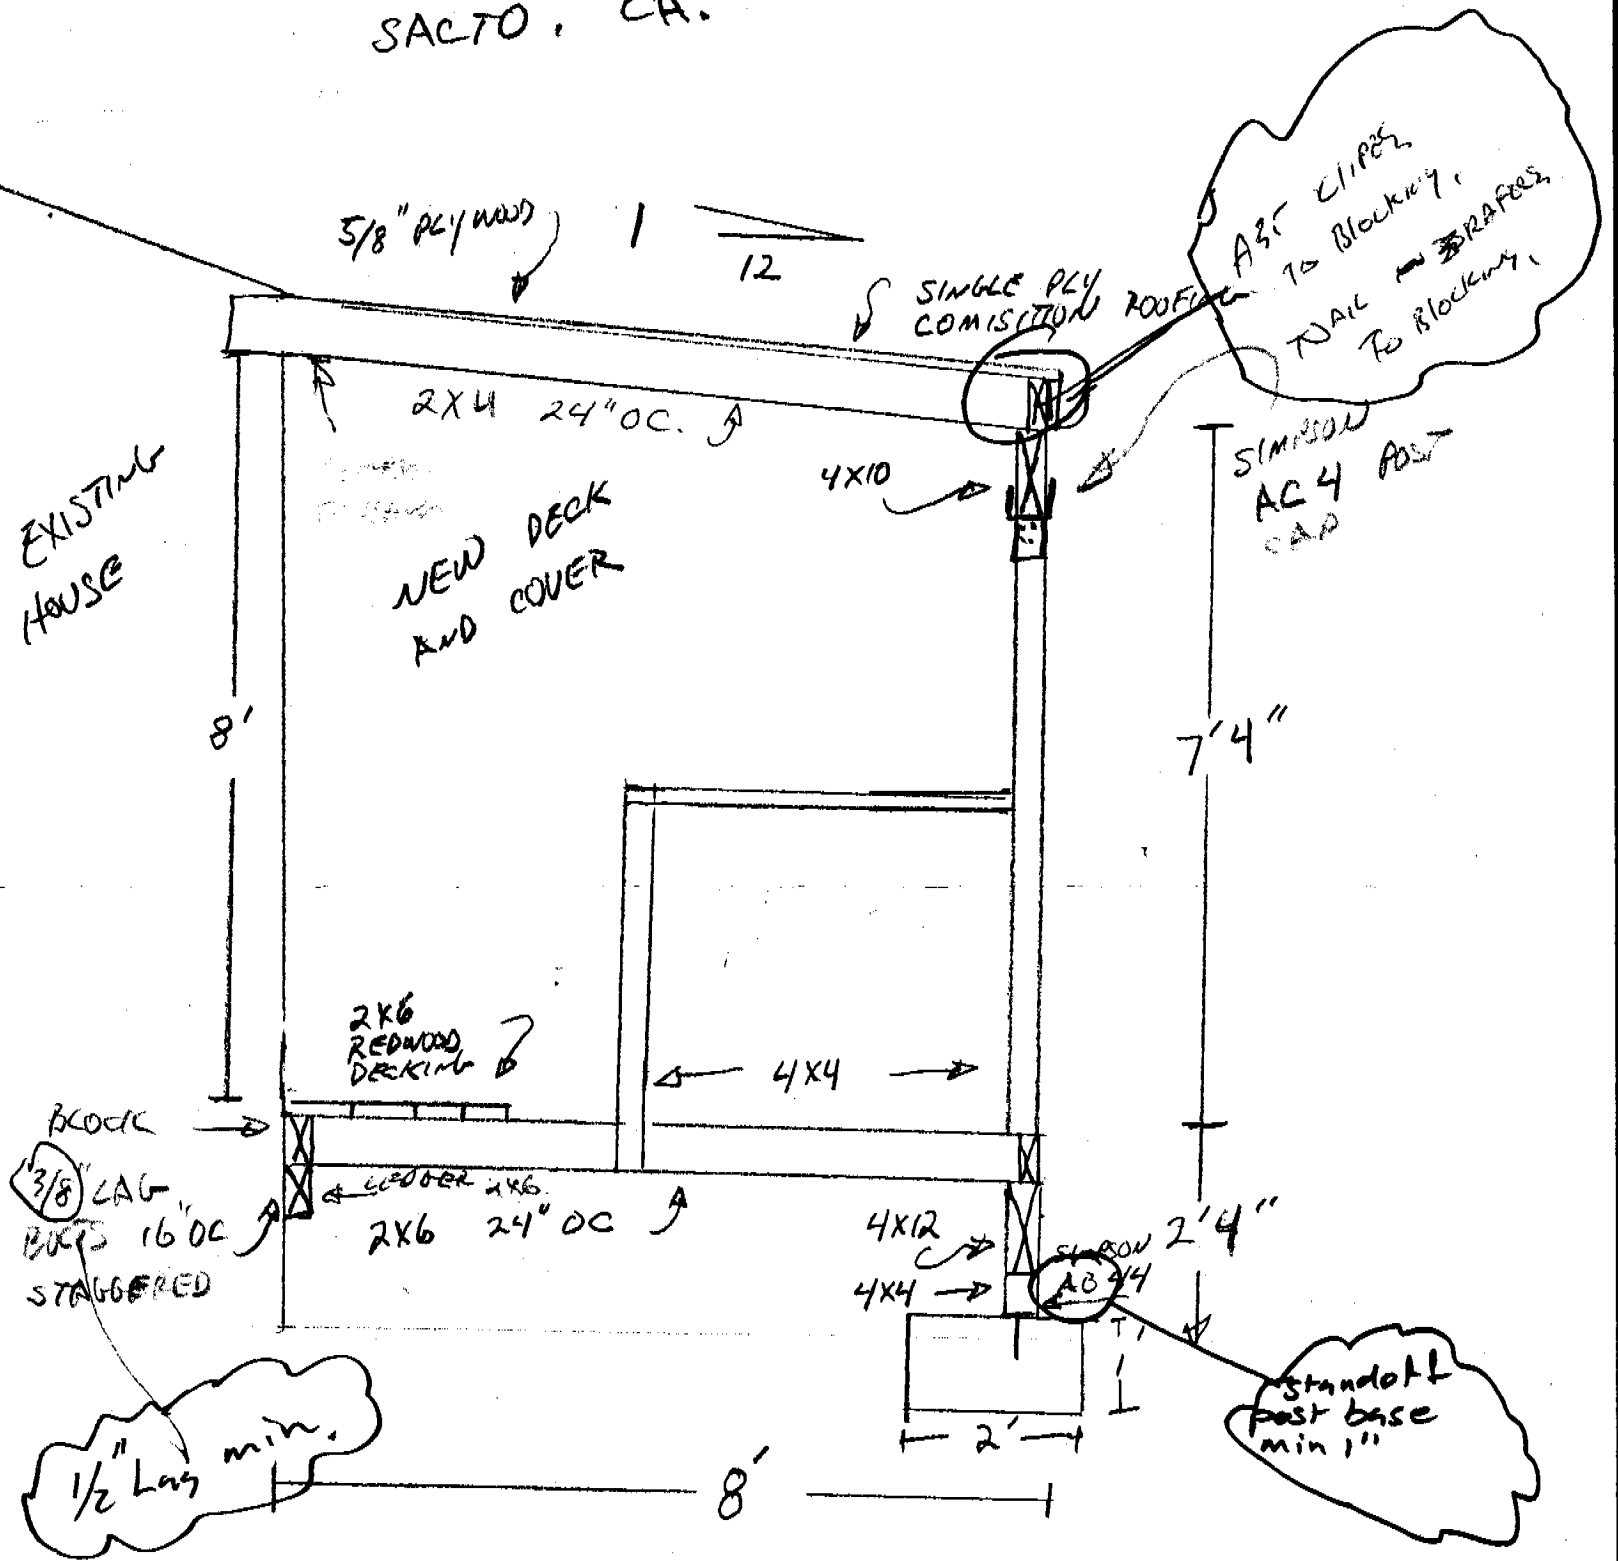 SACTO. CA.
5/8" PLYWOOD
1
12
SINGLE PLY
COMISITION ROOFING
A35 CLIPES
TO BLOCKING.
TOAIL RAFERS
TO BLOCKING.
2X4 24" OC.
4X10
SIMPSON
AC4 POST
CAP
EXISTING
HOUSE
NEW DECK
AND COVER
8'
7'4"
2X6
REDWOOD
DECKING
4X4
BLOCK
"3/8" LAG
BOLTS 16" OC
STAGGERED
LEDGER 2X6
2X6 24" OC
4X12
4X4
SIMPSON
AB 44
2'4"
1'
2'
8'
1/2" Lag min.
standoff
post base
min 1"